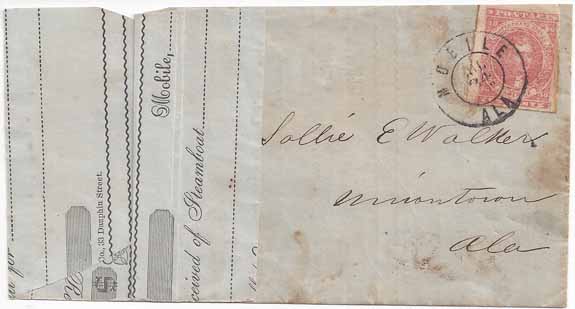 MOBILE
ALA
Sallie E Walker
Uniontown
Ala
Mobile,
No. 33 Dauphin Street.
ceived of Steamboat